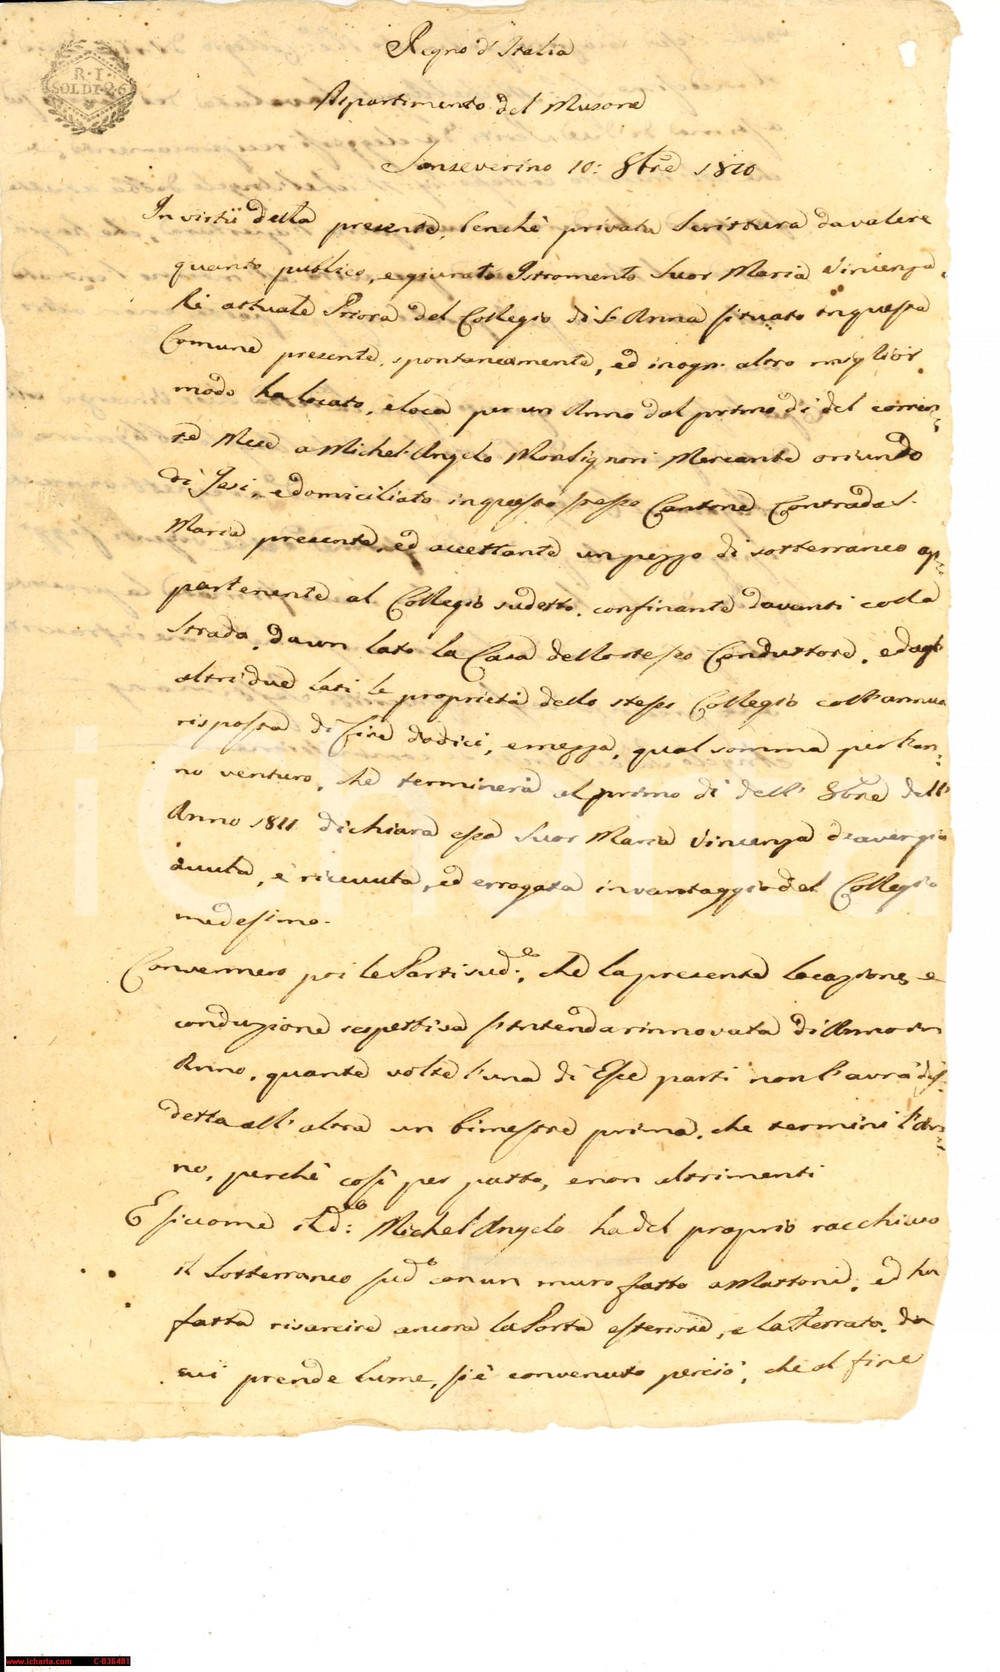 Regno d'Italia
R·I·
SOLDI 26
Dipartimento del Musone
Sanseverino 10: 8bre 1810
In virtù della presente, benchè privata Scrittura da valere
quanto publico, e giurato Istromento Suor Maria Vincenza
attuale Priora del Collegio di S. Anna situato in questa
Comune presente, spontaneamente, ed in ogn' altro miglior
modo ha locato, e loca per un Anno dal primo di del corren=
te Mese a Michel'Angelo Monsignori Mercante oriundo
di Jesi, e domiciliato in questo stesso Cantone Contrada S.
Maria presente, ed accettante un pezzo di sotterraneo ap=
partenente al Collegio sudetto, confinante davanti colla
Strada, da un lato la Casa dello stesso Conduttore, ed agl'
altri due lati le proprietà dello stesso Collegio coll'annua
risposta di Lire dodici, e mezza, qual somma per l'an=
no venturo, che terminerà al primo di dell' 8bre dell'
Anno 1811 dichiara essa Suor Maria Vincenza di averzia
avuta, e ricevuta, ed errogata in vantaggio del Collegio
medesimo.
Convennero poi le Parti sud.e, che la presente locazione, e
conduzione respettiva s'intenda rinnovata di Anno in
Anno, quante volte l'una di Esse parti non l'avrà dis=
detta all'altra un bimestre prima, che termini l'An=
no, perchè così per patto, e non altrimenti
E siccome il d:o Michel'Angelo ha del proprio racchiuso
il Sotterraneo sud.o con un muro fatto a Mattoni, ed ha
fatta risarcire ancora la Porta esteriore, e la Ferrata, da
cui prende lume, si è convenuto perciò, che al fine
www.icharta.com C-836481